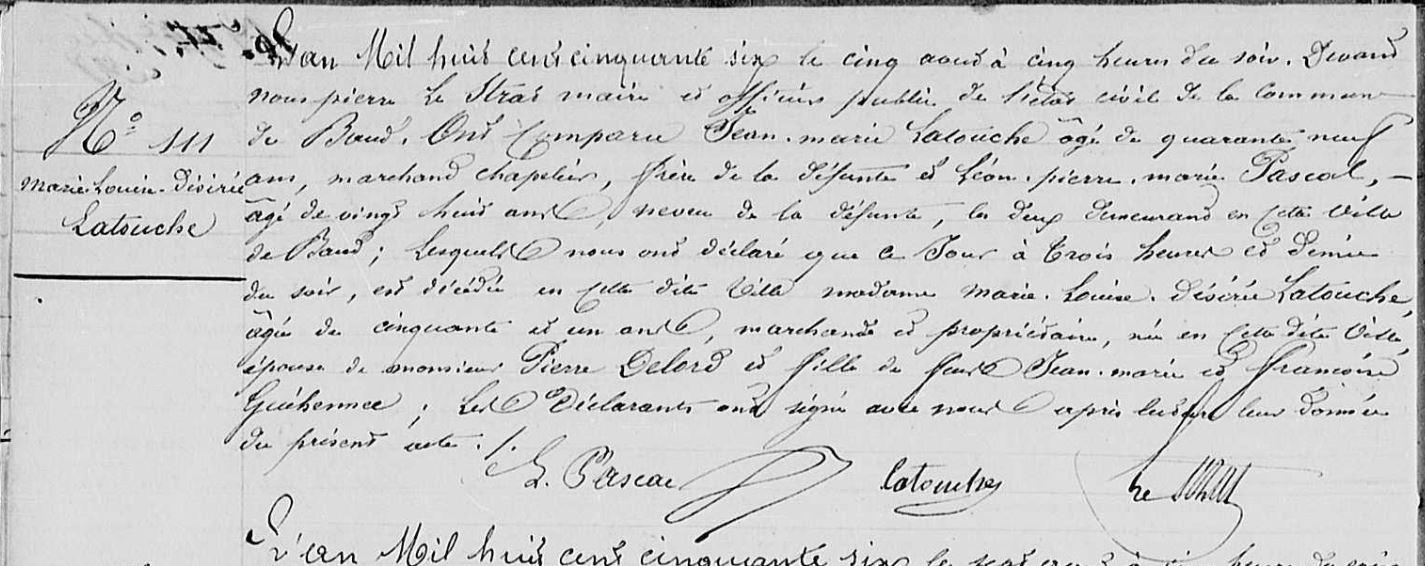 L'an Mil huit cent cinquante six le cinq aout à cinq heures du soir. Devant
nous pierre Le Strat maire et officier public de l'état civil de la commune
N° 111
de Baud. Ont Comparu Jean-marie Latouche âgé de quarante neuf
Marie-Louise-Désirée
ans, marchand chapelier, frère de la défunte et Léon-pierre-marie Pascal, —
Latouche
âgé de vingt huit ans, neveu de la défunte, les deux demeurant en cette Ville
de Baud; Lesquels nous ont déclaré que ce Jour à trois heures et demie
du soir, est décédée en cette dite Ville madame Marie-Louise-Désirée Latouche,
âgée de cinquante et un ans, marchande et propriétaire, née en cette dite Ville,
épouse de monsieur Pierre Delord et fille de feus Jean-marie et Françoise
Guéhennec; Les Déclarants ont signé avec nous après lecture leur donnée
du présent acte./.
L. Pascal Latouche Le Strat
L'an Mil huit cent cinquante six le sept